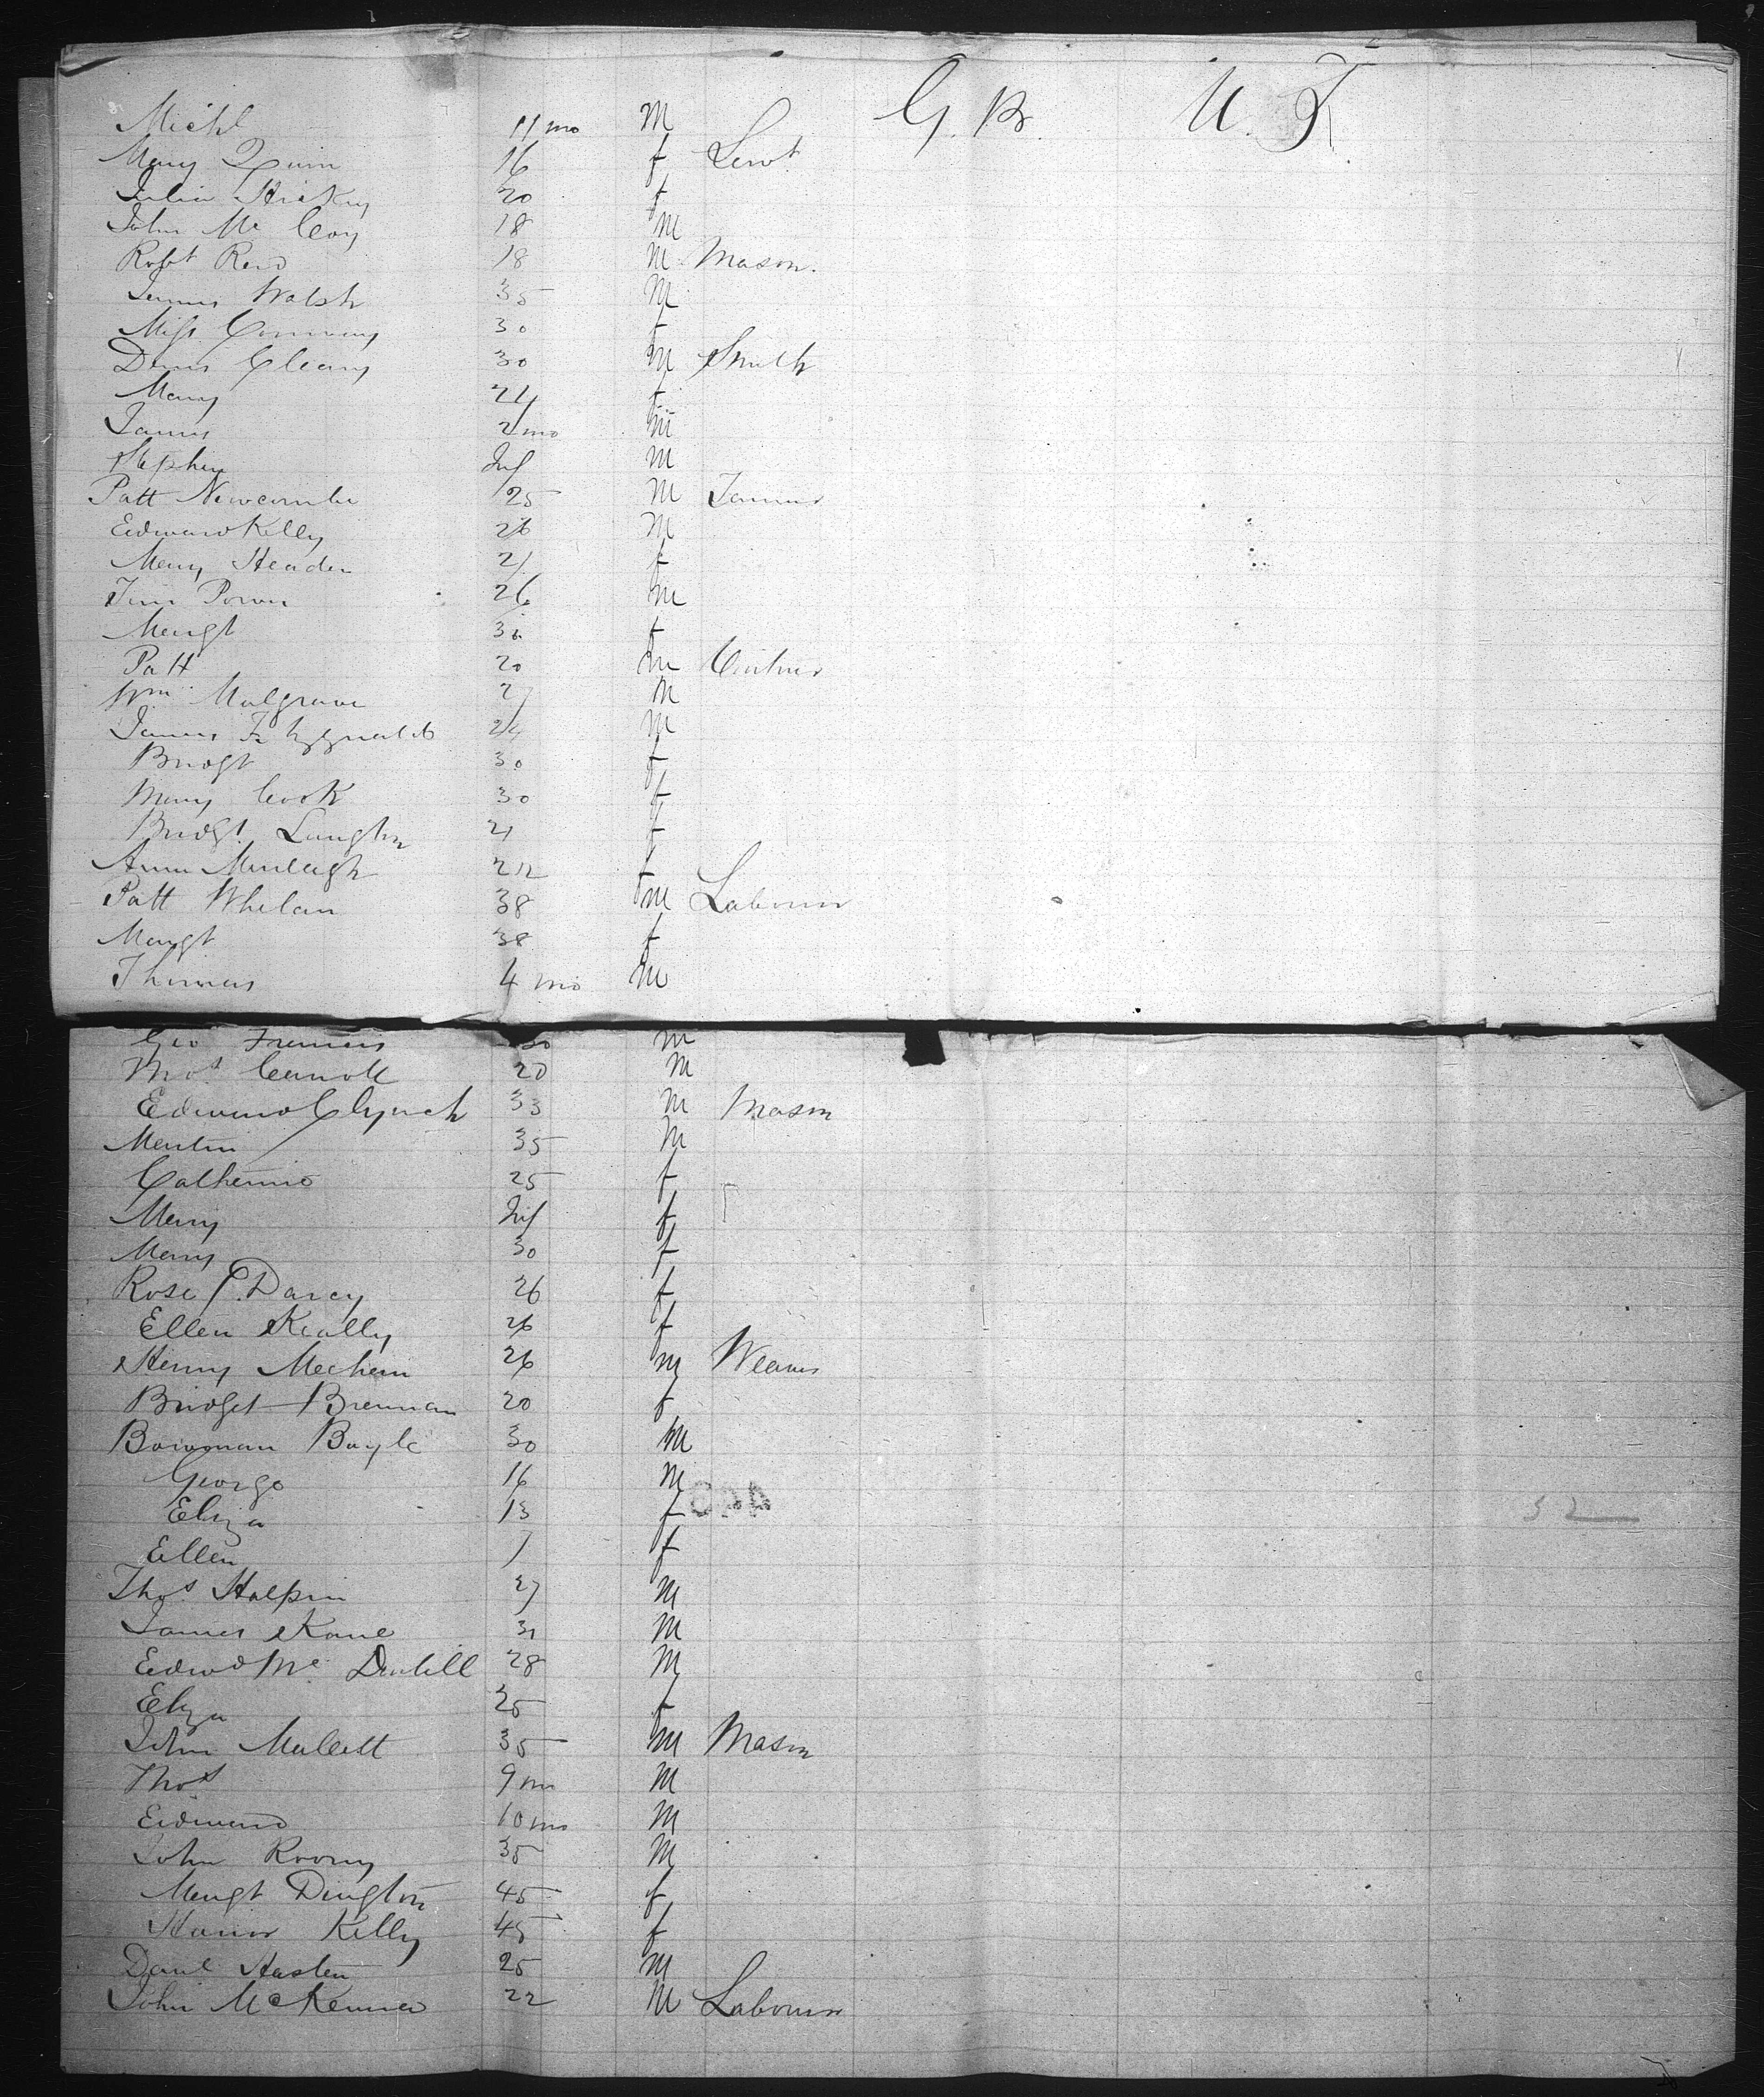 Michl 11 mo M G. B. U. S.
Mary Quinn 16 f Servt
Julia Hickey 20 f
John Mc Coy 18 M
Robt Reid 18 M Mason.
James Walsh 35 M
Miss Conway 30 f
Denis Cleary 30 M Smith
Mary 24 f
James 2 mo M
Stephen Inf M
Patt Newcombe 25 M Tanner
Edward Kelly 26 M
Mary Headen 21 f
Tim Power 26 M
Margt 30 f
Patt 20 M
Wm Mulgrave 27 M
James Fitzgerald 24 M
Bridgt 30 f
Mary Cook 30 f
Bridgt Langton 21 f
Ann 22 f
Patt Whelan 38 M Labourer
Margt 38 f
Thomas 4 mo M
Geo 30 M
Thos Carroll 20 M
Edward Clynch 33 M Mason
Martin 35 M
Catherine 25 f
Mary Inf f
Mary 30 f
Rose P. Darcy 26 f
Ellen Keally 26 f
Henry Mechem 26 M Weaver
Bridget Brennan 20 f
Bowman Boyle 30 M
George 16 M
Eliza 13 f 52
Ellen 1 f
Thos Halpin 27 M
James Kane 31 M
Edwd Mc 28 M
Eliza 25 f
John Mullett 35 M Mason
Thos 9 mo M
Edward 10 mo M
John Roony 35 M
Margt Dington 45 f
Honor Kelly 45 f
Danl Haslen 25 M
John McKenna 22 M Labourer